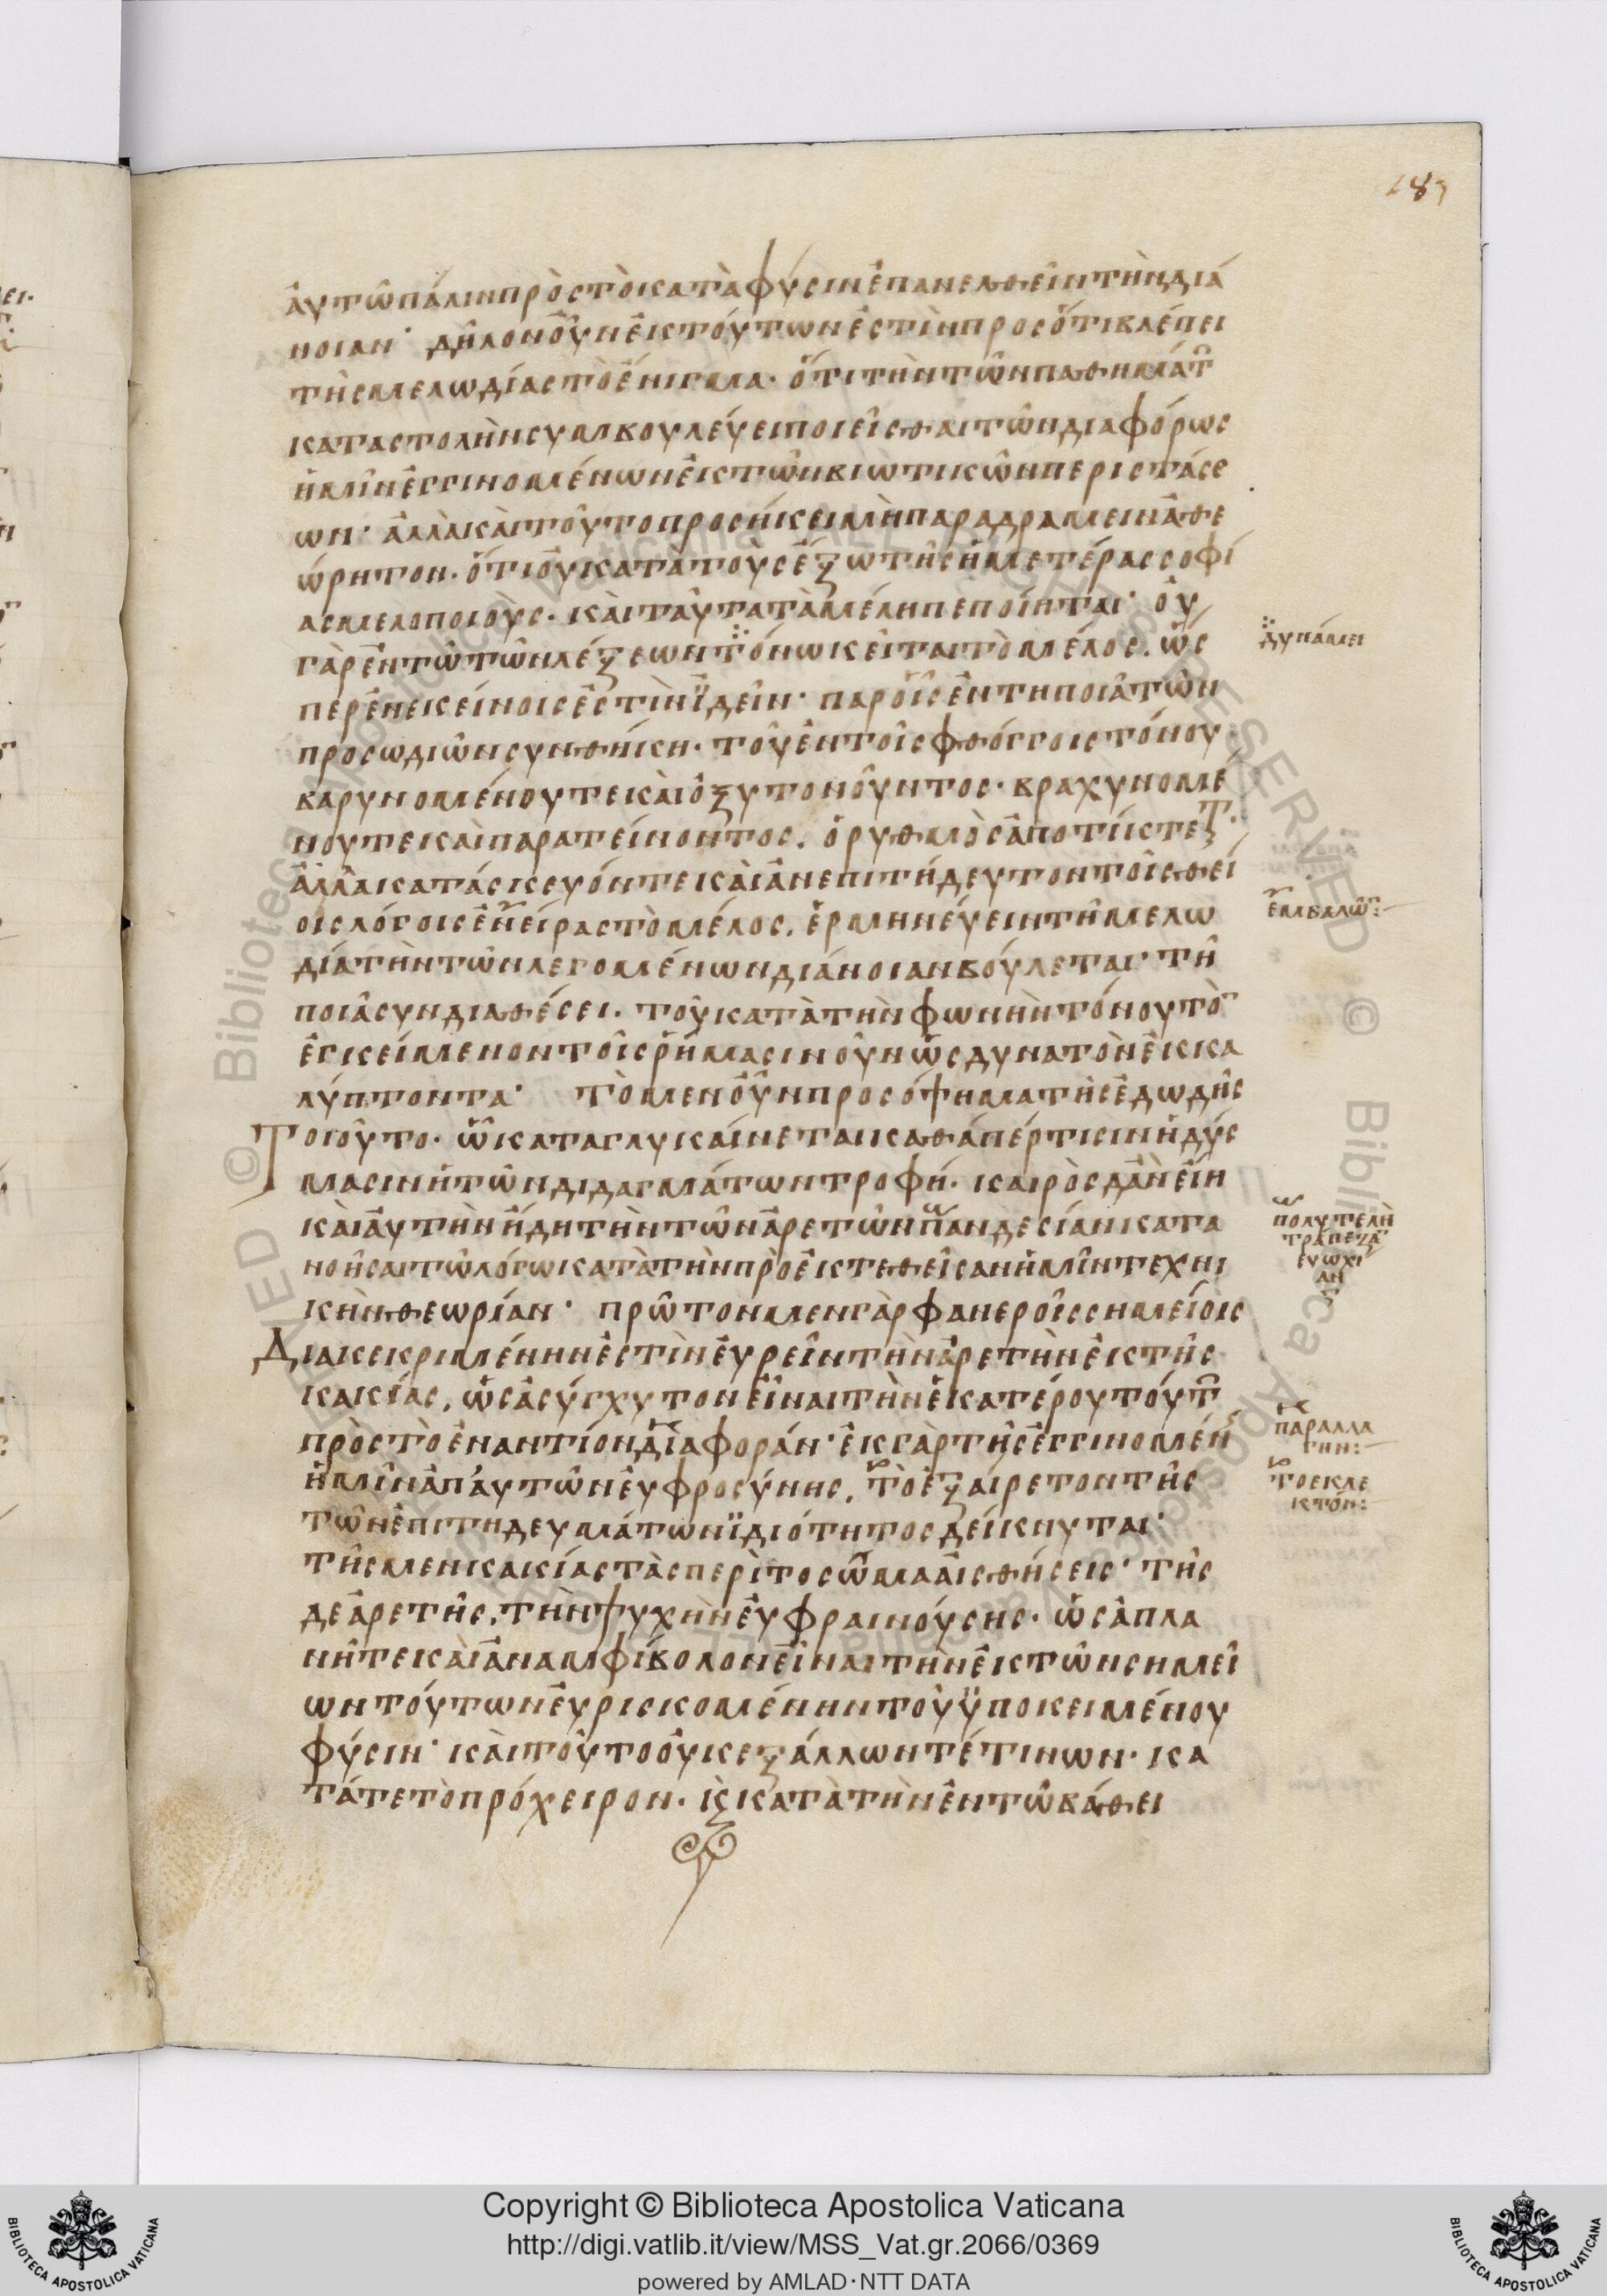 183
ἀυτῶ πάλιν πρὸς τὸ κατὰ φύσιν ἐπανελθεῖν τὴν διά
νοιαν· δῆλον οὖν ἐκ τούτων ἐστὶν προς ὅτι βλέπει
τῆς μελωδίας τὸ ἔνιγμα· ὅτι τὴν τῶν παθημάτ
καταστολὴν συμβουλέυει ποιεῖσθαι τῶν διαφόρως
ἡμῖν ἐγγινομένων ἐκ τῶν βιωτικῶν περιστάσε
ων· ἀλλὰ καὶ τοῦτο προσήκει μὴ παραδραμειν ἀθε
ώρητον· ὅτι οὐ κατὰ τοὺς ἔξω τῆς ἡμετέρας σοφί
ας μελοποιοὺς· καὶ ταῦτα τὰ μέλη πεποίηται· ὀυ
γὰρ ἐν τῶ τῶν λέξεων τόνω κεῖται τὸ μέλος. ὥς
περ ἐν εκείνοις ἐστὶν ἰδεῖν· παρ οἷς ἐν τη ποιᾶ τῶν
προσωδιῶν συνθήκη· τοῦ ἐν τοῖς φθόγγοις τόνου
βαρυνομένου τε καὶ ὀξυτονοῦντος· βραχυνομέ
νου τε καὶ παρατείνοντος. ὁ ρυθμὸς ἀποτίκτετ
ἀλλὰ κατάσκευόν τε καὶ ἀνεπιτήδευτον τοῖς θεί
οις λόγοις ἐνείρας τὸ μέλος. ἑρμηνέυειν τῆ μελω
δία τὴν τῶν λεγομένων διάνοιαν βούλεται· τῆ
ποιᾶ συνδιαθέσει. τοῦ κατὰ τὴν φωνὴν τόνου τὸ
ἐγκείμενον τοῖς ῥήμασιν νοῦν ὡς δυνατὸν ἐκκα
λύπτοντα· τὸ μεν οὖν προσόψημα τῆς ἐδωδῆς
Τοιοῦτο· ᾧ καταγλυκαίνεται καθάπέρ τισιν ἡδύς
μασιν ἡ τῶν διδαγμάτων τροφή. καιρὸς δ' ἂν εἴη
καὶ ἀυτὴν ἤδη τὴν τῶν ἀρετῶν πανδεσίαν κατα
νοῆσαι τῶ λόγω κατὰ τὴν προ ἐκτεθεῖσαν ἡμῖν τεχνι
κὴν θεωρίαν· πρῶτον μεν γὰρ φανεροῖς σημείοις
Διακεκριμένην ἐστὶν ἑυρεῖν τὴν ἀρετὴν ἐκ τῆς
κακίας, ὡς ἀσύγχυτον εἶναι τὴν ἑκατέρου τούτ
πρὸς τὸ ἐναντίον διαφοράν· ἐκ γὰρ τῆς ἐγγινομένη
ἡμῖν ἀπ' αυτῶν ἐυφροσύνης, τὸ ἐξαίρετον τῆς
τῶν ἐπιτηδευμάτων ἰδιότητος δείκνυται·
τῆς μεν κακίας τὰς περὶ το σῶμα ἀισθήσεις· τῆς
δε ἀρετῆς, τὴν ψυχὴν ἐυφραινούσης· ὡς ἀπλα
νῆ τε καὶ ἀναμφίβολον εἶναι τὴν ἐκ τῶν σημεί
ων τούτων ἑυρισκομένην τοῦ ὑποκειμένου
φύσιν· καὶ τοῦτο ὀυκ εξ άλλων τέ τινων· κα
τά τε τὸ πρόχειρον. κ(αὶ) κατὰ τὴν ἐν τῶ βάθει
δυνάμει
εμβαλών:
πολυτελῆ
τράπεζα
ευωχί
αν
παραλλα
γην:
το εκλε
κτόν:
© Biblioteca Apostolica Vaticana ALL RIGHTS RESERVED
Copyright © Biblioteca Apostolica Vaticana
http://digi.vatlib.it/view/MSS_Vat.gr.2066/0369
powered by AMLAD·NTT DATA
BIBLIOTECA APOSTOLICA VATICANA
BIBLIOTECA APOSTOLICA VATICANA